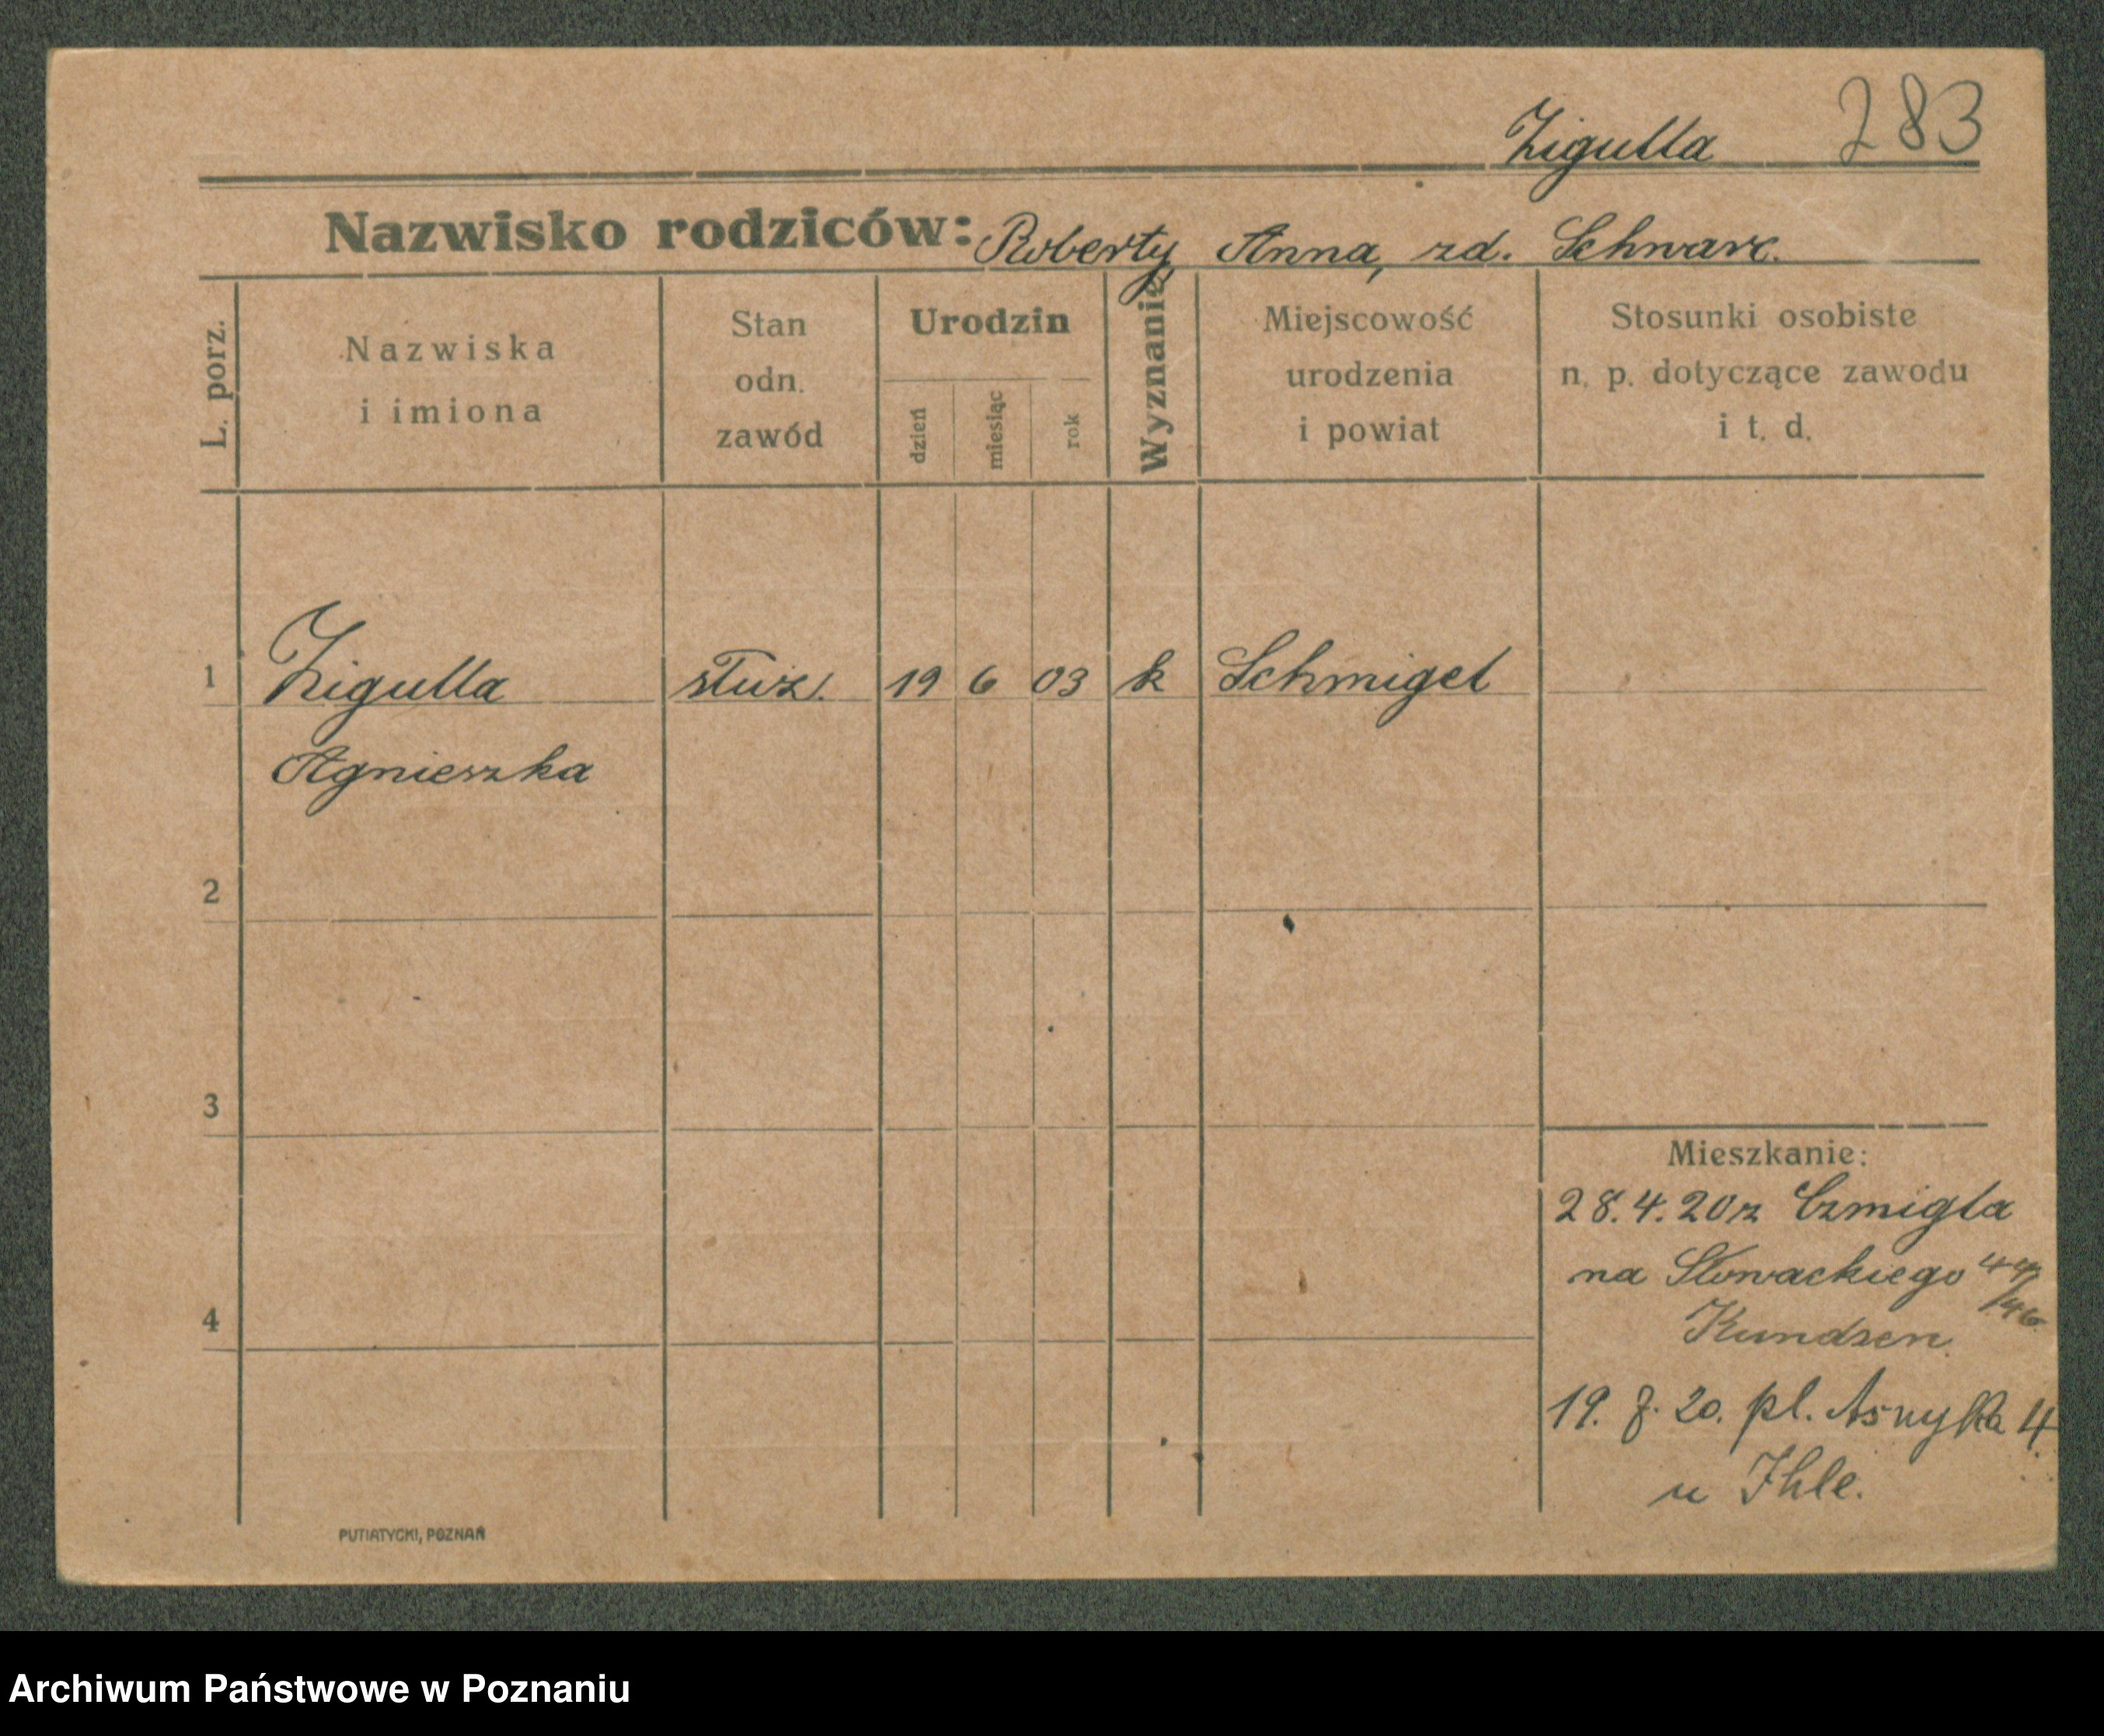 Zigulla 283
Nazwisko rodziców: Roberty Anna, zd. Schwarc.
L. porz.
Nazwiska
i imiona
Stan
odn.
zawód
Urodzin
dzień
miesiąc
rok
Wyznanie
Miejscowość
urodzenia
i powiat
Stosunki osobiste
n. p. dotyczące zawodu
i t. d.
1 Zigulla służ. 19 6 03 k Schmigel
Agnieszka
2
3
4
Mieszkanie:
28.4.20 z Czmigla
na Słowackiego 44/46
Kundsen.
19. 7. 20. pl. Asnyka 4.
u Ihle.
PUTIATYCKI, POZNAŃ
Archiwum Państwowe w Poznaniu